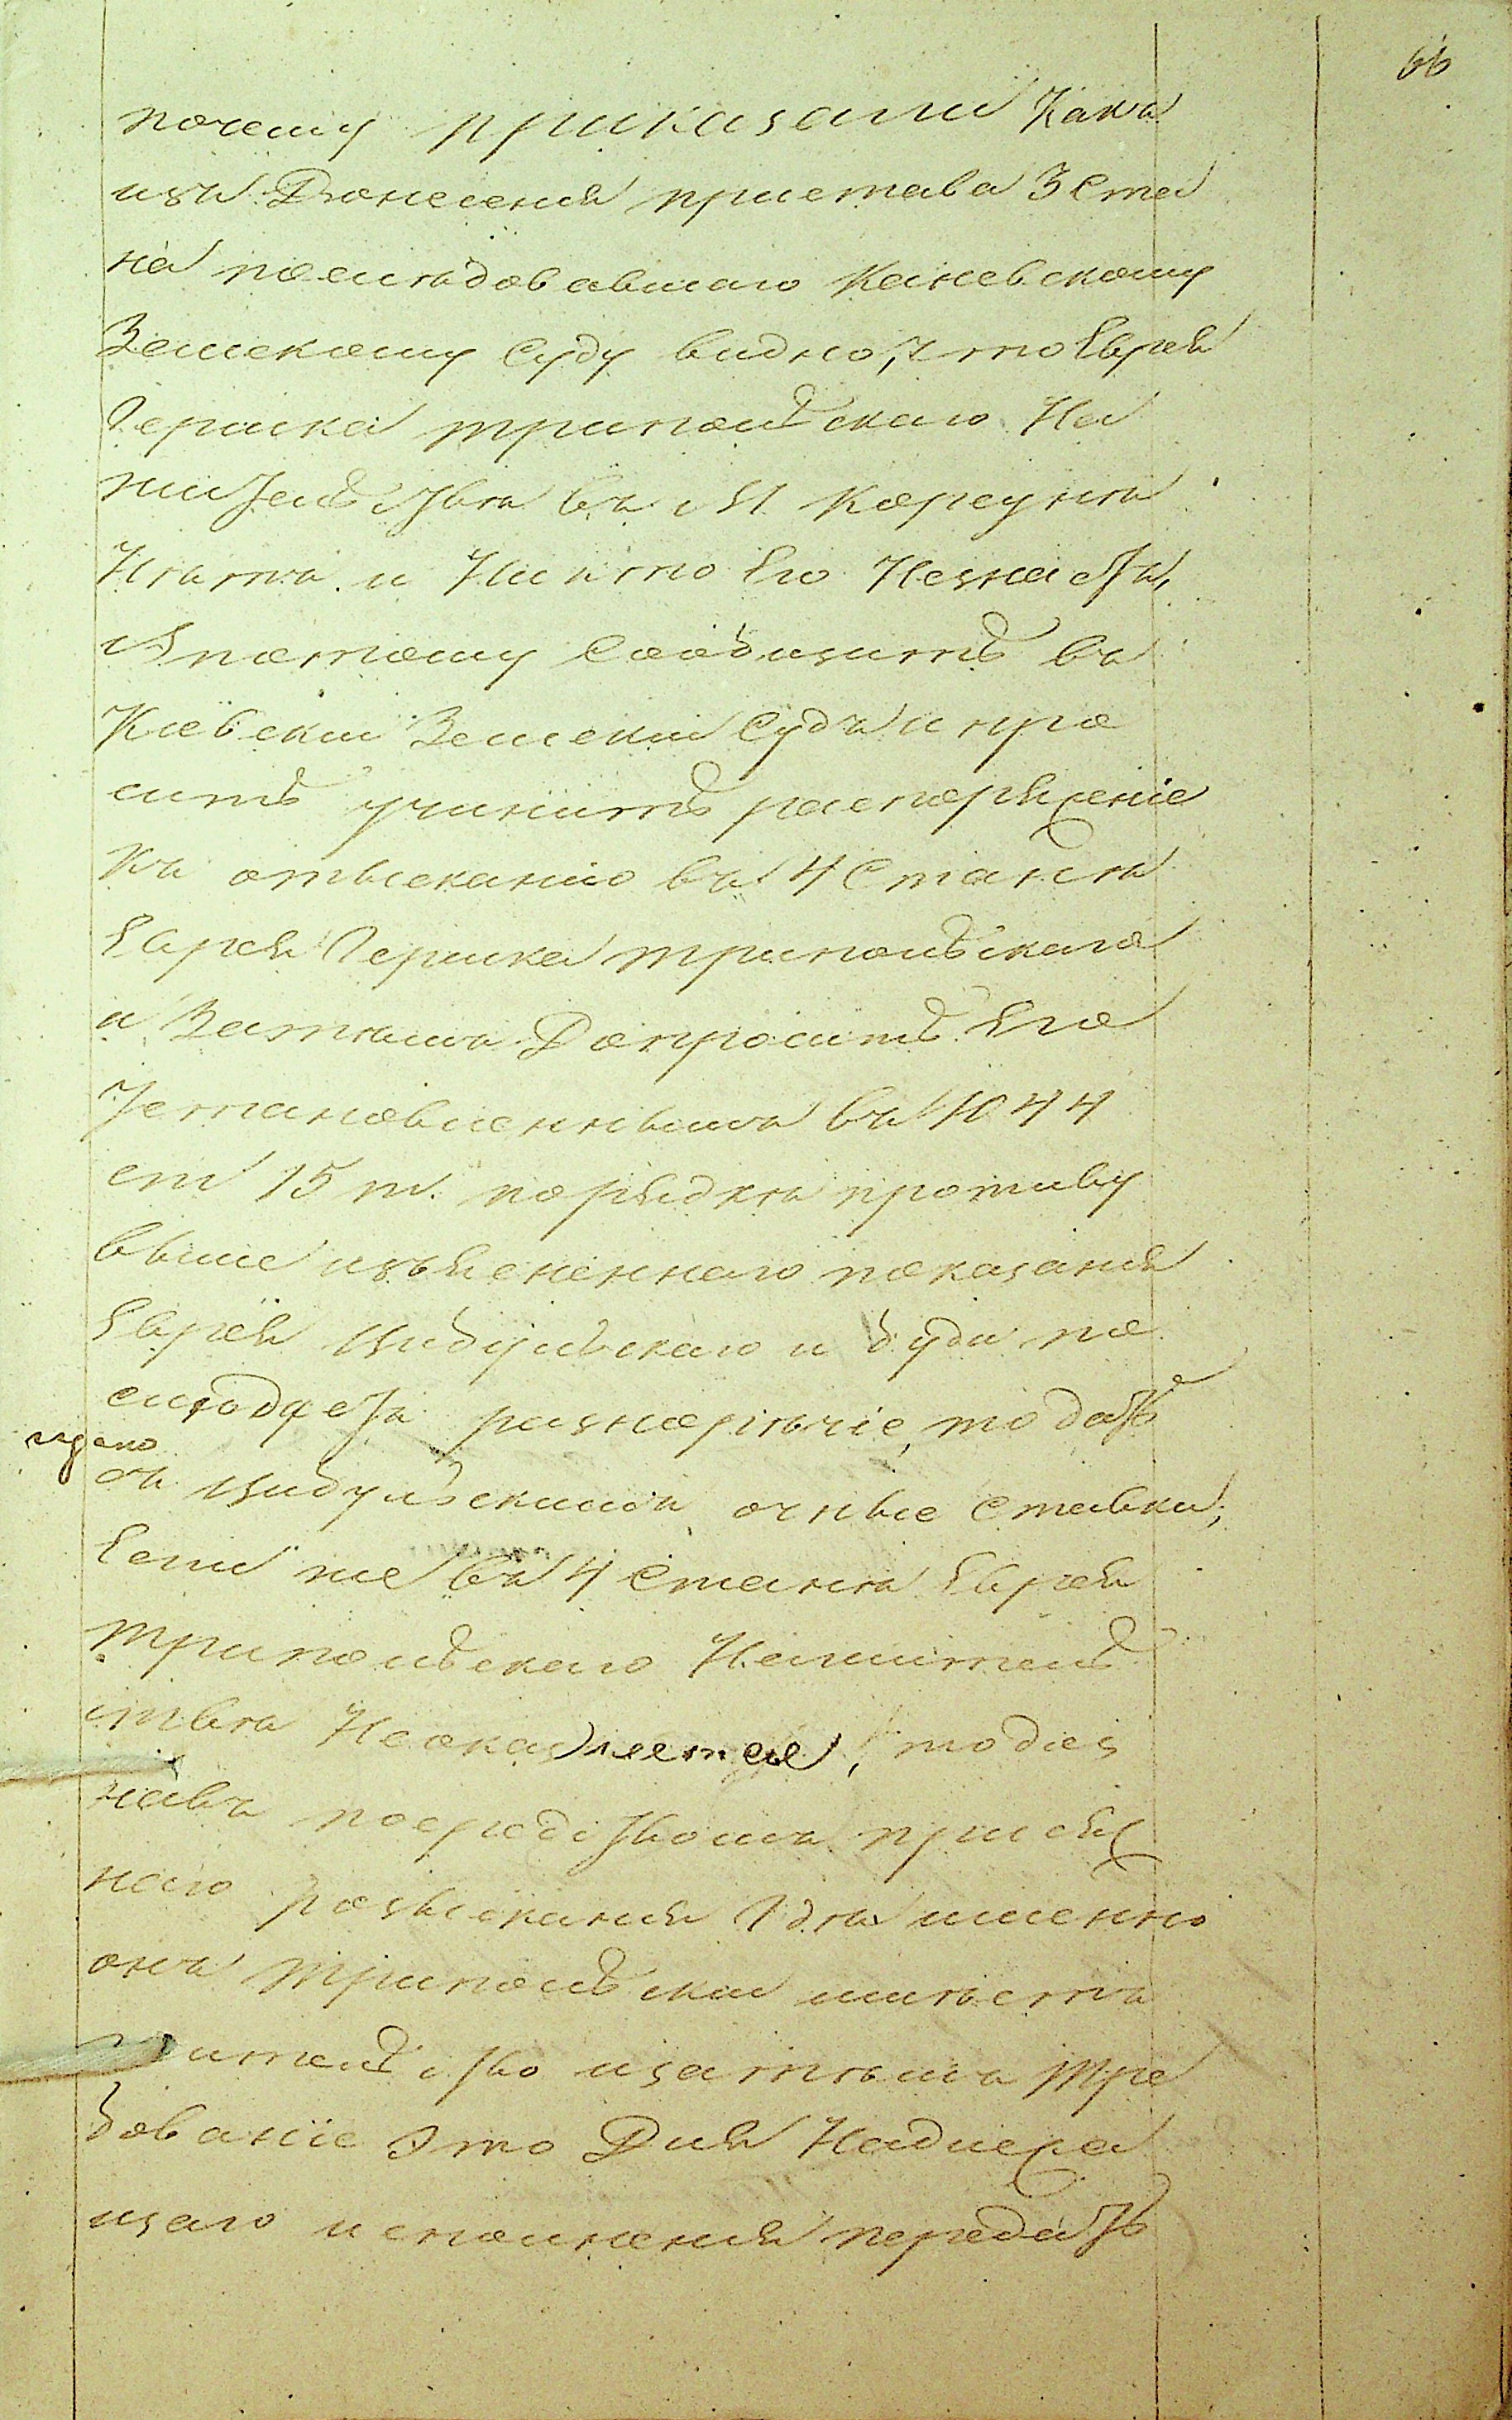 66
почему приказали Какъ
изъ Донесения пристава 3 Ста
на послѣдовавшаго Каневскому
Земскому Суду видно, что Еврея
Гершка трипольскаго На
жительствѣ въ М Корсунѣ
Нѣтъ и Никто Его Незнаетъ,
А потому Сообщить въ
Киевски Земски Судъ и про
сить учинить распоряженіе
къ отысканию въ 4 Станѣ
Еврея Гершка трипольскаго
и Затѣмъ Допросить Его
Установленнымъ въ 1044
ст 15 т. порядкѣ противу
выше изъясненнаго показания
Еврея Цыбульскаго и буди по
слѣдуетъ разнорѣчіе, то дать
съ Цыбульскимъ очные Ставки;
Если же въ 4 Станѣ Еврея
трипольскаго Нажитель
ствѣ Неокажется, то диз
навъ посредствомъ присяж
наго розыскания Гдѣ именно
онъ трипольски имѣетъ
жительство изатѣмъ тре
бование Это Для Надлежа
щаго исполнения передать